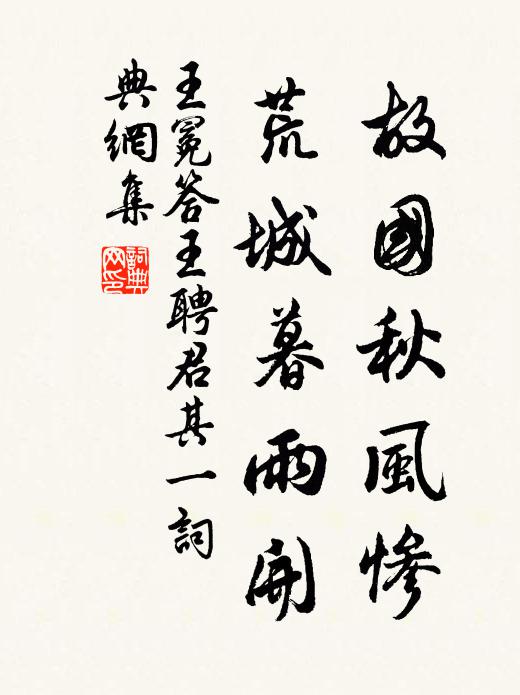 故國秋風慘
荒城暮雨開
王冕答王聘君其一詞
典網集
詞典網印